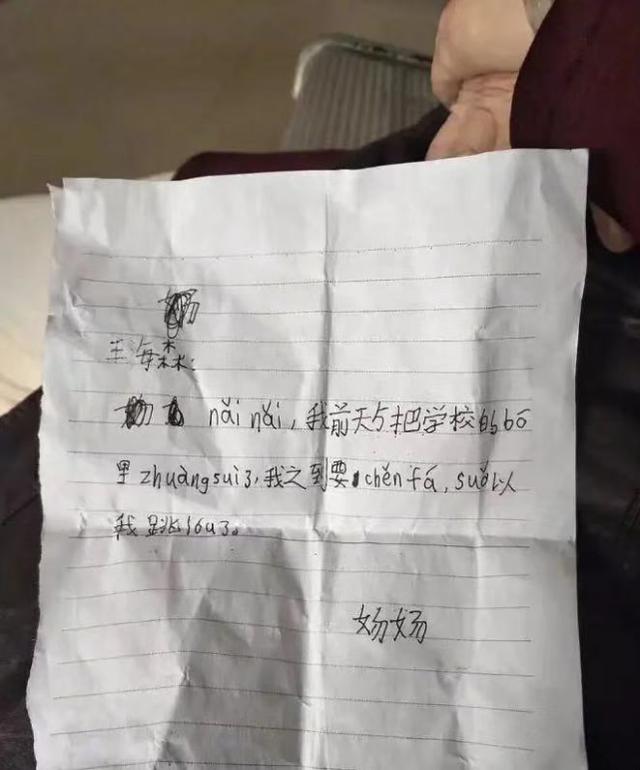 王海森:
nǎi nǎi，我前天与把学校的bō
里zhuàngsuì了，我之到要chěn fá，suǒ以
我跳lóu了。